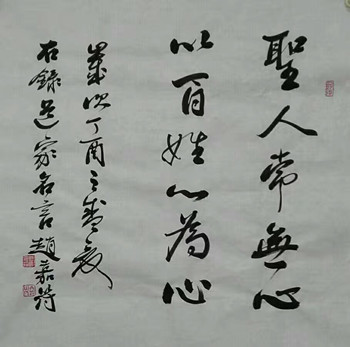 聖人常無心
以百姓心為心
歲次丁酉之秋
右錄道家名言趙嘉符